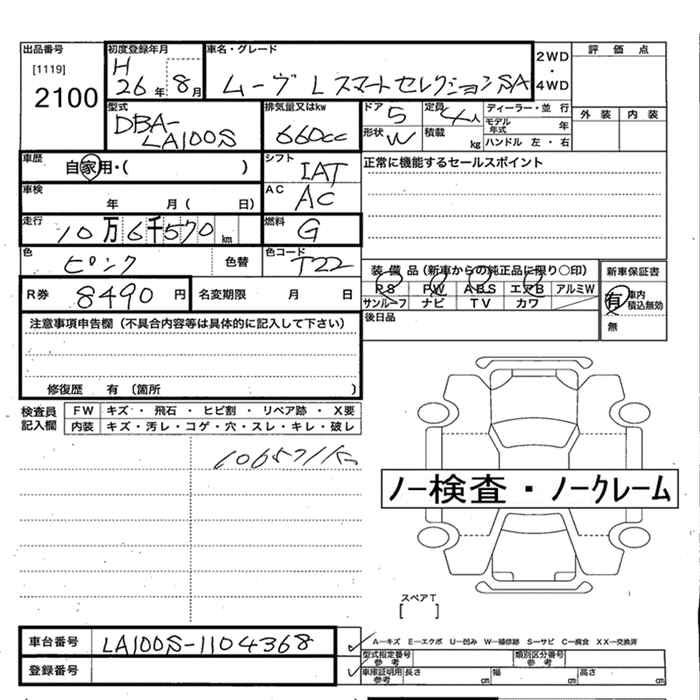 出品番号
[1119]
2100
初度登録年月
H
26年 8月
車名・グレード
ムーヴ L スマートセレクションSA
2WD
・
4WD
評 価 点
外 装 内 装
型式
DBA-
LA100S
排気量又はkw
660cc
ドア 5
定員 4人
形状 W
積載 kg
ディーラー・並 行
モデル年式 年
ハンドル 左・右
車歴
自家用・( )
シフト
IAT
正常に機能するセールスポイント
車検
年 月( 日)
AC
AC
走行
10万6千570km
燃料
G
色
ピンク
色替
色コード
T22
装 備 品 (新車からの純正品に限り○印)
PS PW ABS エアB アルミW
サンルーフ ナビ TV カワ
新車保証書
有 車内積込無効
無
R券 8490円
名変期限 月 日
後日品
注意事項申告欄(不具合内容等は具体的に記入して下さい)
修復歴 有 〔箇所 〕
検査員
記入欄
FW キズ・飛石・ヒビ割・リペア跡・X要
内装 キズ・汚レ・コゲ・穴・スレ・キレ・破レ
106571km
ノー検査・ノークレーム
スペアT
[ ]
車台番号 LA100S-1104368
登録番号
A―キズ E―エクボ U―凹み W―補修跡 S―サビ C―腐食 XX―交換済
型式指定番号
参考
類別区分番号
参考
車庫証明用
参考
長さ cm 幅 cm 高さ cm